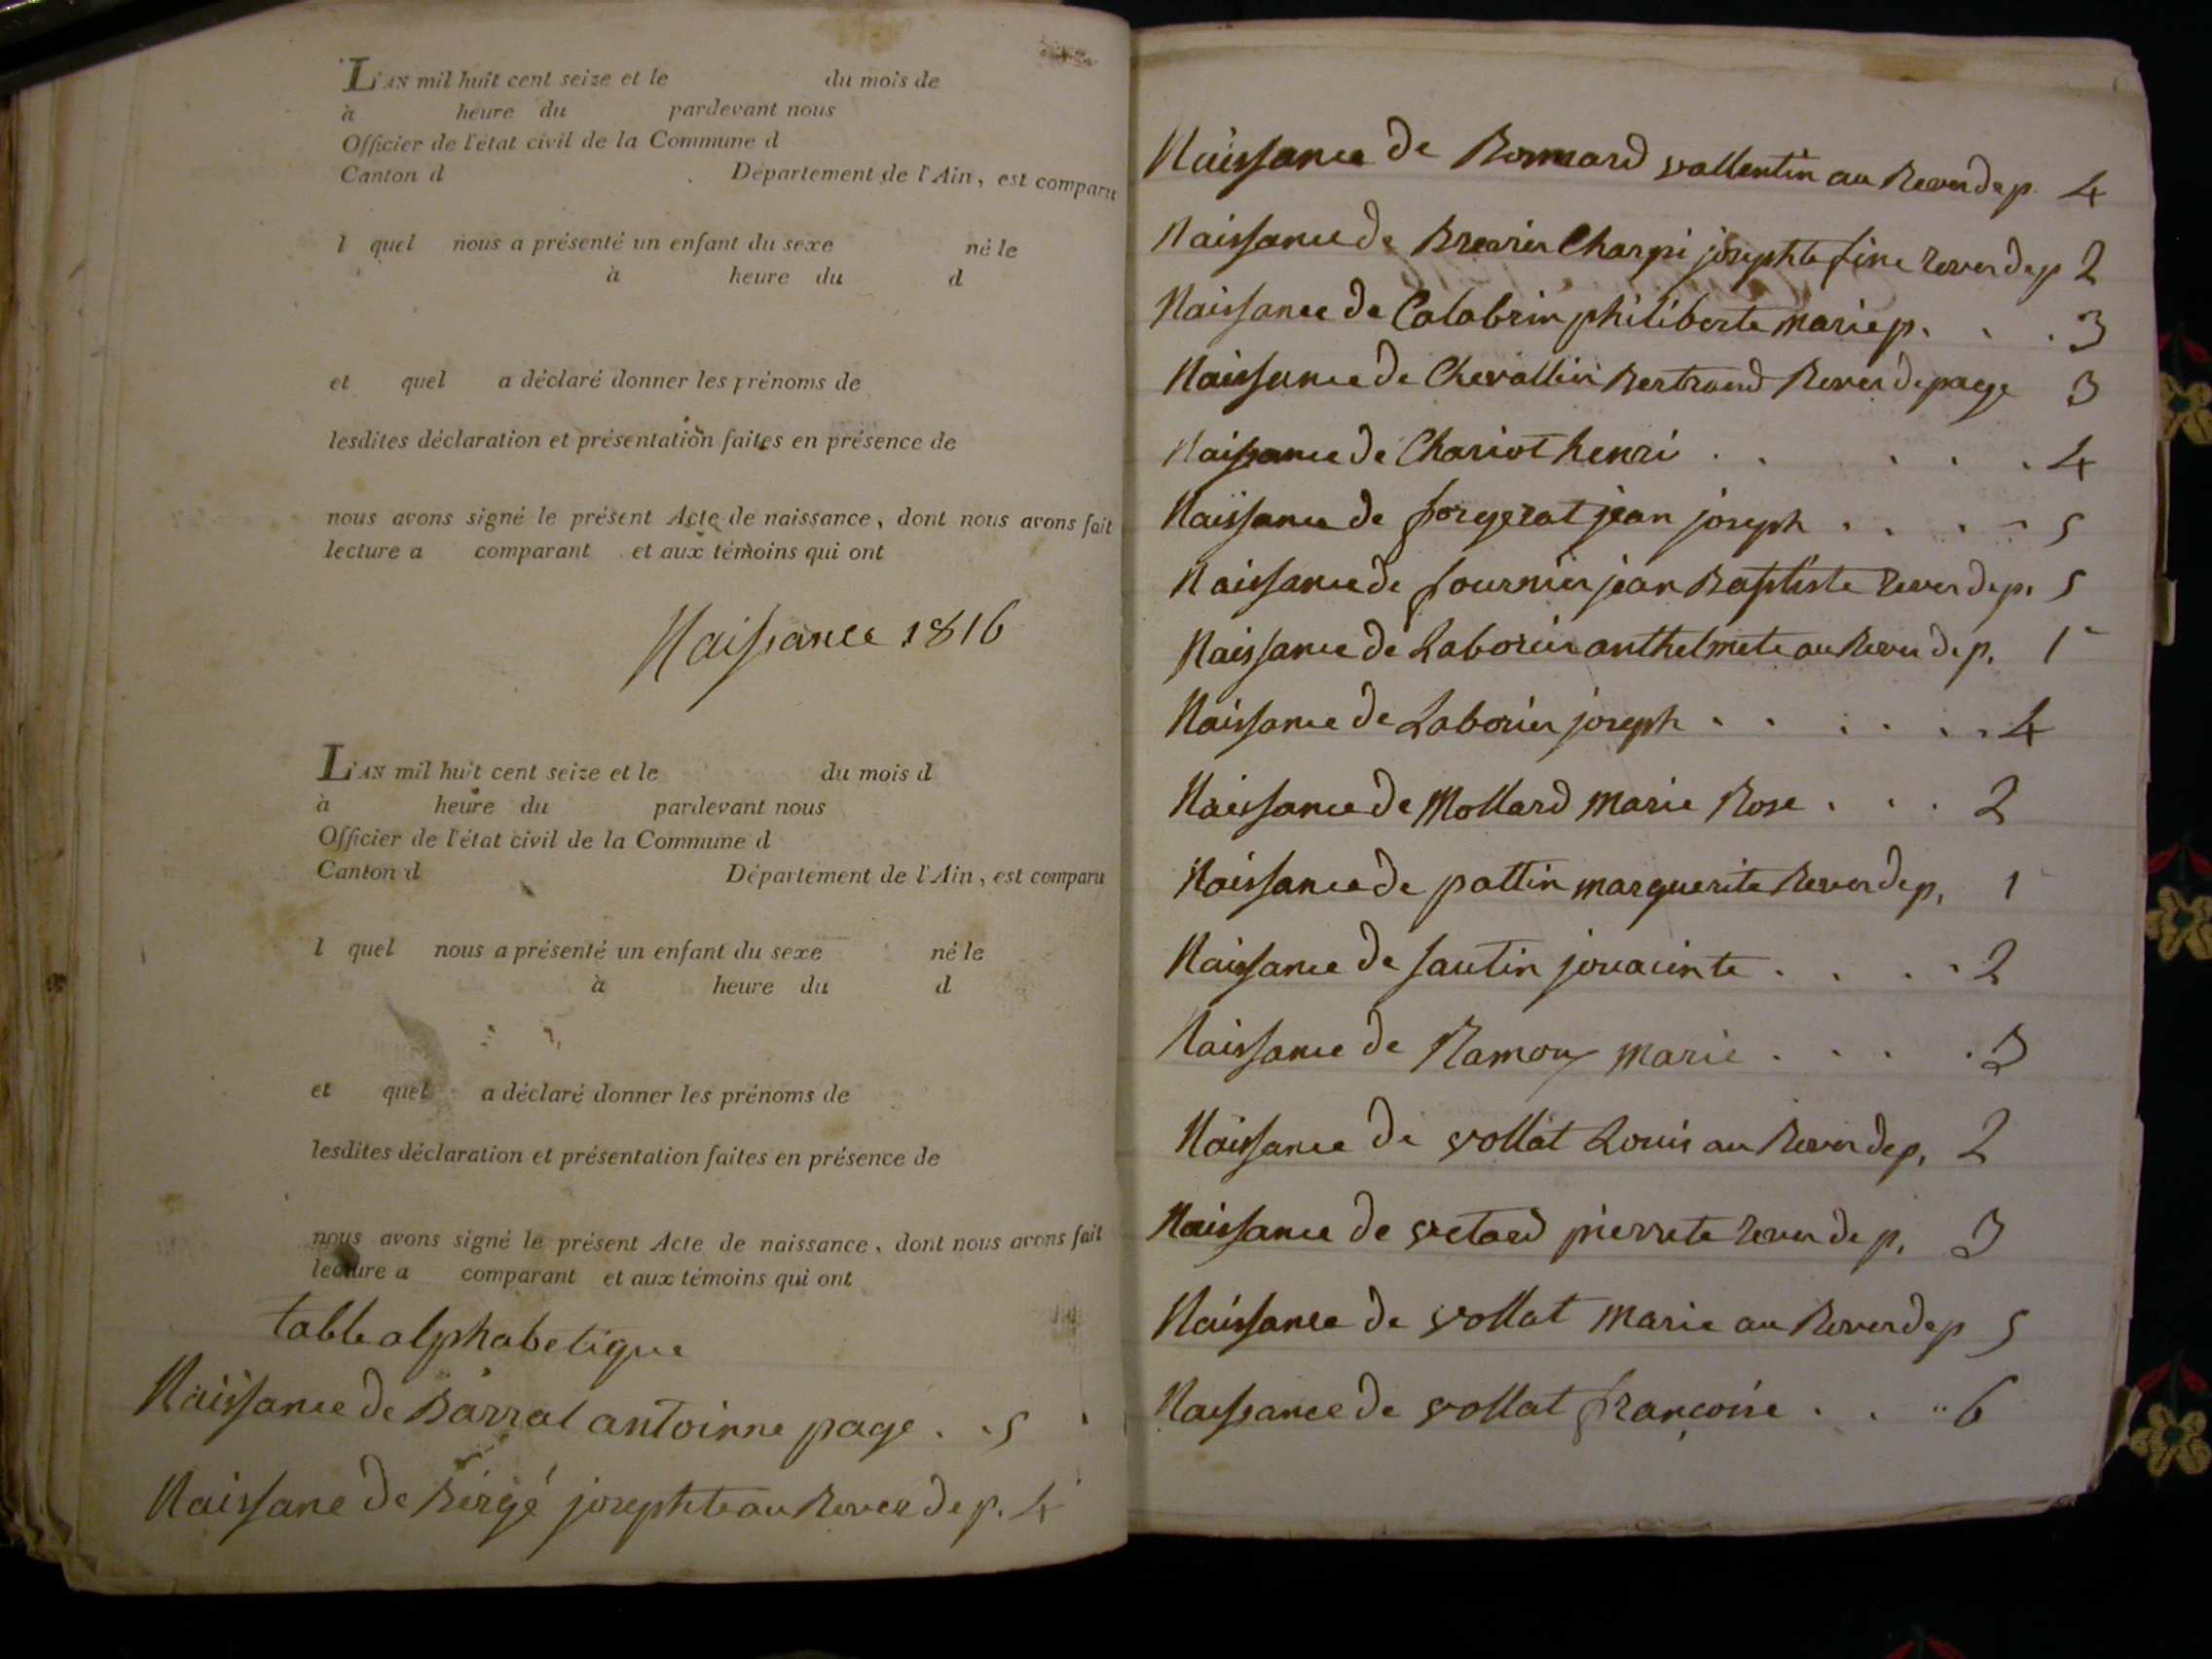 L'AN mil huit cent seize et le du mois de
à heure du pardevant nous
Officier de l'état civil de la Commune d
Canton d Département de l'Ain, est comparu
l quel nous a présenté un enfant du sexe né le
à heure du d
et quel a déclaré donner les prénoms de
lesdites déclaration et présentation faites en présence de
nous avons signé le présent Acte de naissance, dont nous avons fait
lecture a comparant et aux témoins qui ont
Naissance 1816
L'AN mil huit cent seize et le du mois d
à heure du pardevant nous
Officier de l'état civil de la Commune d
Canton d Département de l'Ain, est comparu
l quel nous a présenté un enfant du sexe né le
à heure du d
et quel a déclaré donner les prénoms de
lesdites déclaration et présentation faites en présence de
nous avons signé le présent Acte de naissance, dont nous avons fait
lecture a comparant et aux témoins qui ont
table alphabetique
Naissance de Barral antoinne page . . 5
Naissane de Bergé josephte au Rever de p. 4
Naissance de Bonnard vallentin au Rever de p. 4
Naissance de Charpi josephte fine rever de p 2
Naissance de Calabrin philiberte marie p. . . 3
Naissance de Chevallier Bertrand Rever de page 3
Naissance de Chariot henri . . . . . . 4
Naissance de forgerat jean joseph . . . . 5
Naissance de fournier jean Baptiste rever de p. 5
Naissance de Laborier anthelmete au Rever de p. 1
Naissance de Laborier joseph . . . . . . 4
Naissance de Mollard marie Rose . . . 2
Naissance de pattin marguerite Rever de p. 1
Naissance de sautin jouacinte . . . . 2
Naissance de Ramoux marie . . . . 3
Naissance de vollat Louis au Rever de p. 2
Naissance de vetard pierrete rever de p. 3
Naissance de vollat marie au Rever de p 5
Naissance de vollat françoise . . .. 6